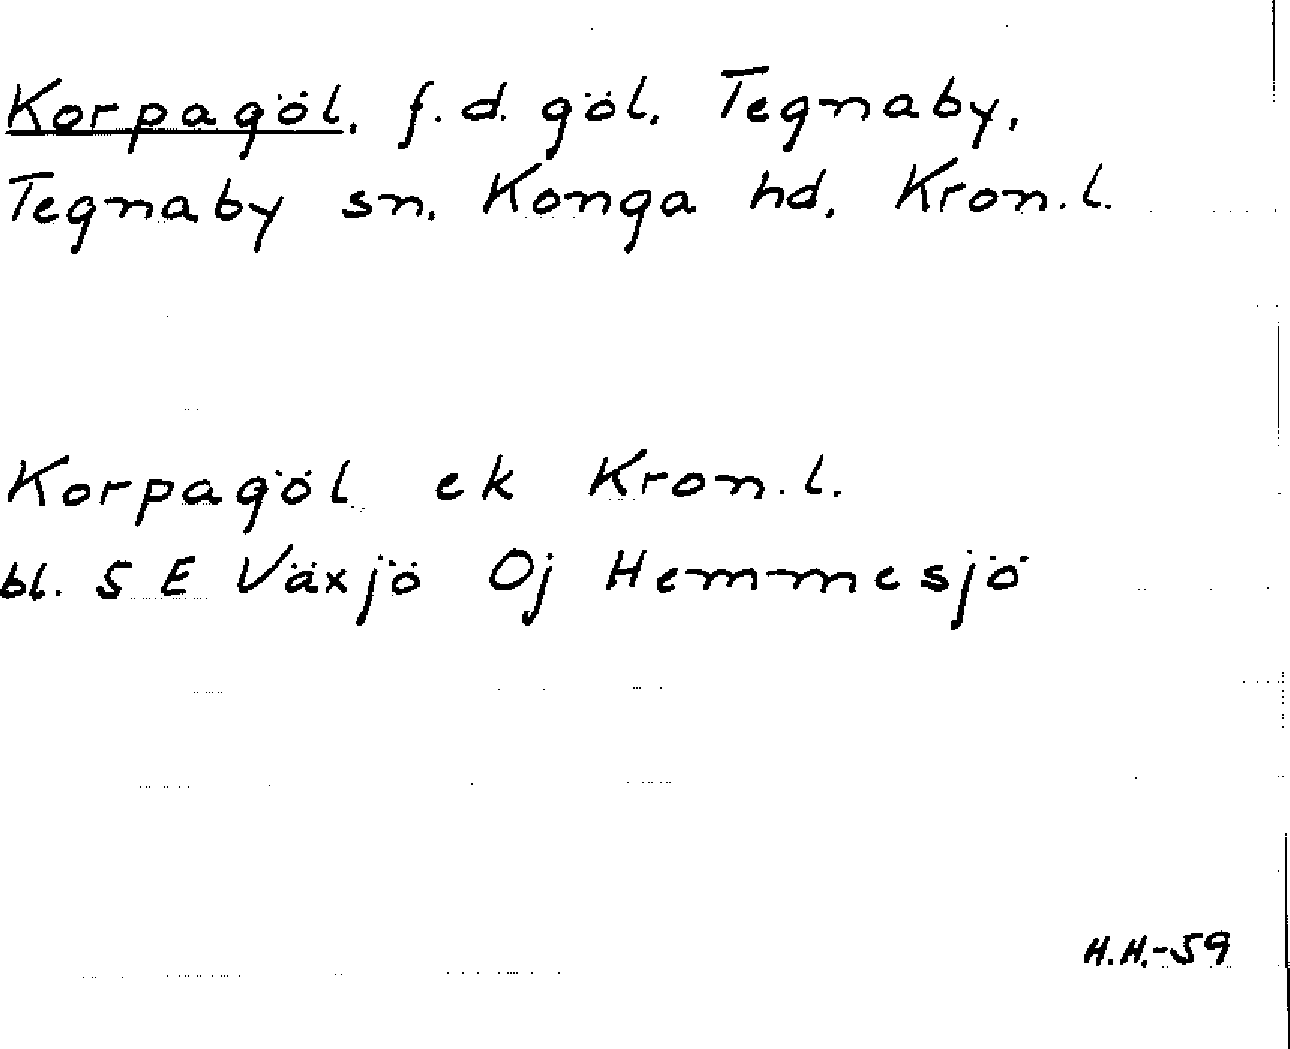 Korpagöl. f.d. göl. Tegnaby,
Tegnaby sn. Konga hd. Kron.l.
Korpagöl ek Kron.l.
bl. S E Växjö Oj Hemmesjö
H.H.-59